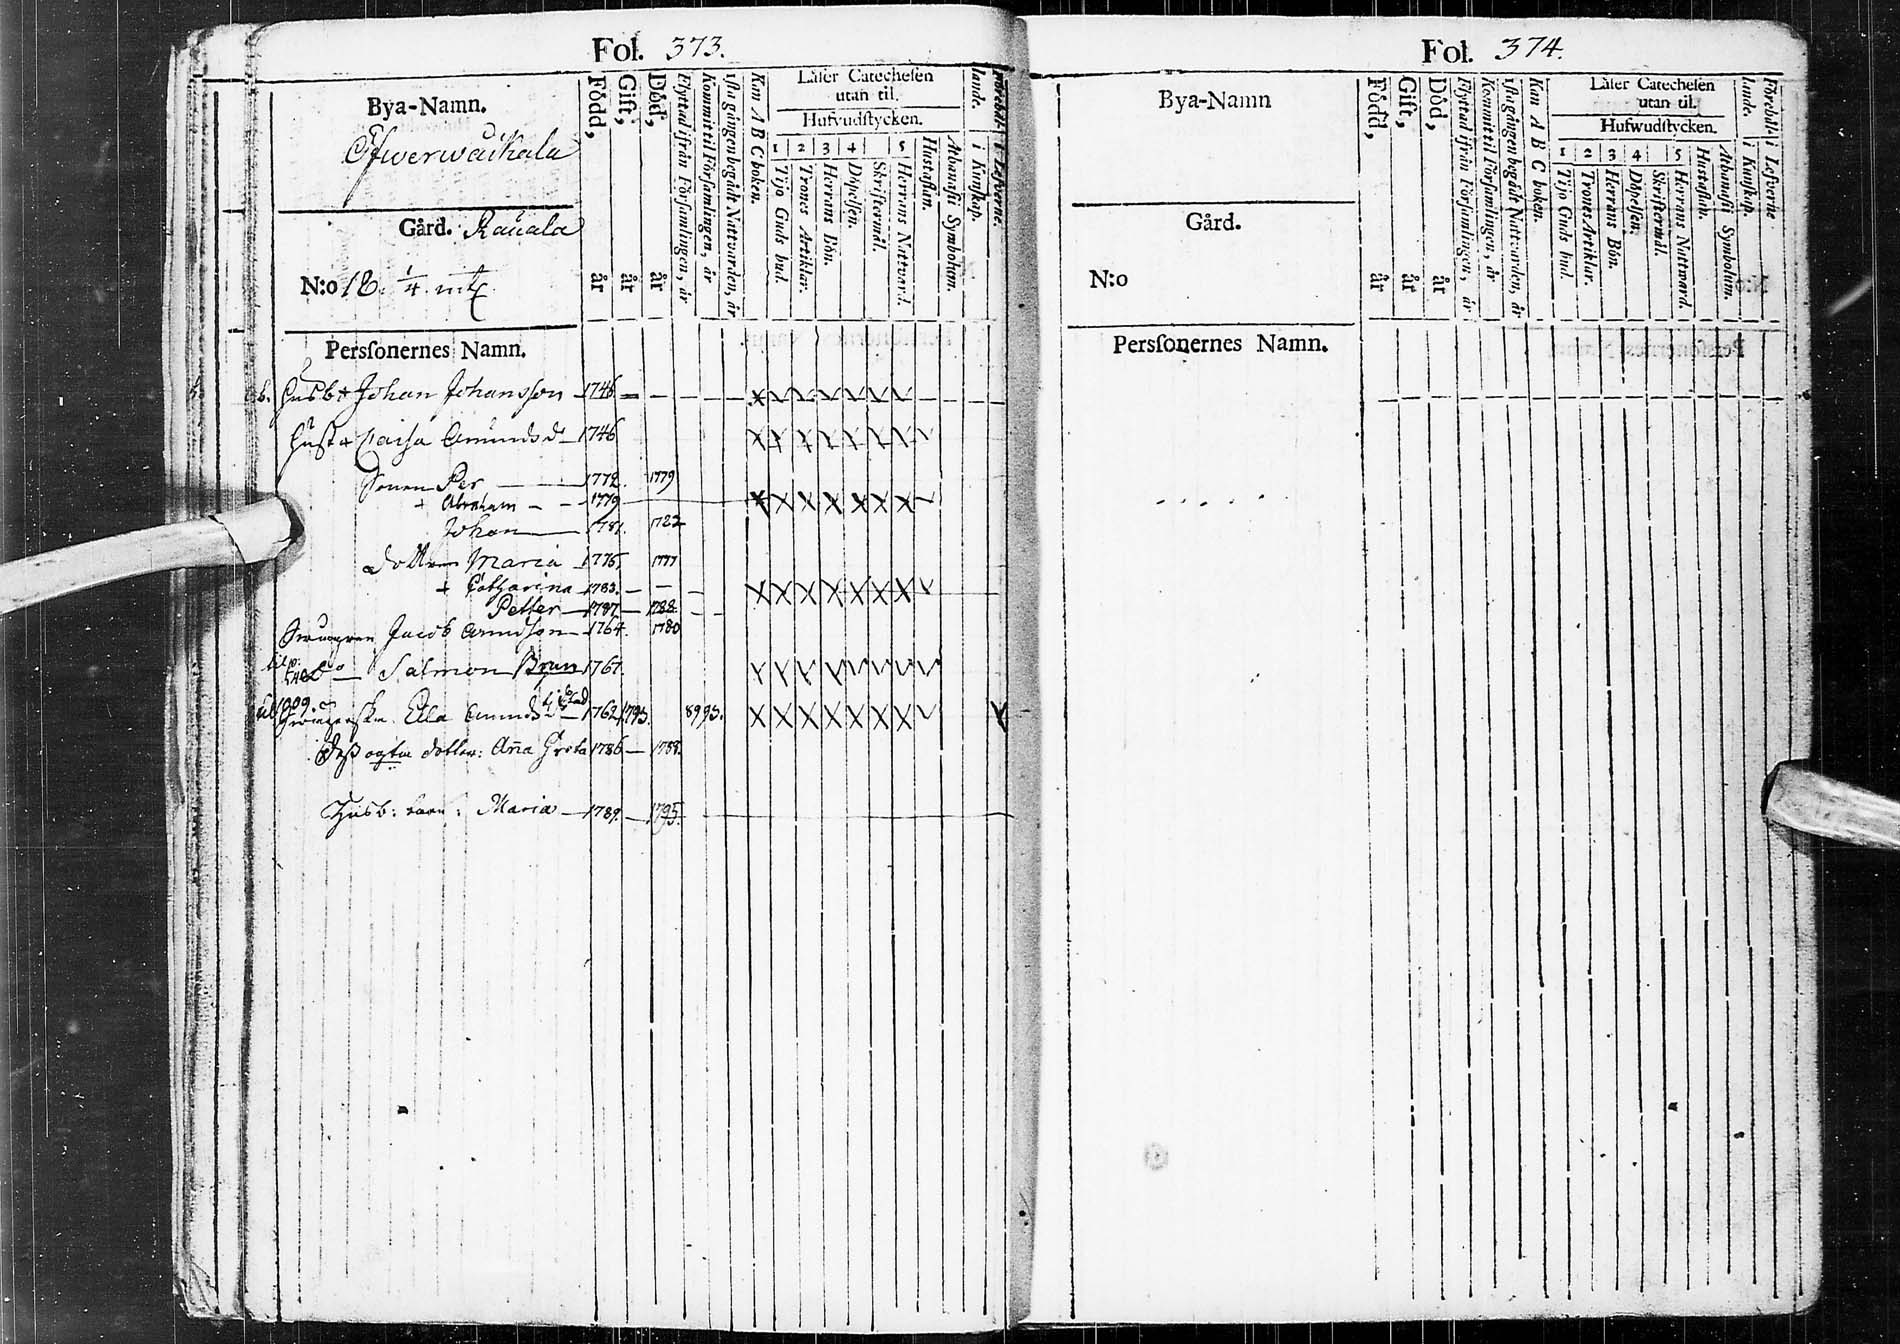 Fol. 373.
Bya-Namn.
Öfwerwäikala
Gård. Rauala
N:o 18. 1/4 mtl.
Perſonernes Namn.
Född, år
Gift, år
Död, år
Flyttad ifrån Förſamlingen, år
Kommit til Förſamlingen, år
1ſta gången begådt Nattvarden, år
Kan A B C boken.
Läſer Catecheſen
utan til.
Hufvudſtycken.
1 2 3 4 5
Tijo Guds bud.
Trones Artiklar.
Herrans Bön.
Döpelſen.
Skriftermål.
Herrans Nattvard.
Huſtaflan.
Athanaſii Symbolum.
i Kunſkap.
i Lefverne.
b. Husb + Johan Johansſon 1746
Hust + Caisa Amunds d. 1746
Sonen Per 1772. 1779
+ Abraham 1779
Johan 1781. 1782
dottren Maria 1776. 1777
+ Catharina 1783.
Petter 1787. 1788
Jacob Amundsſon 1764. 1780
Salmon Brun 1761.
Ella Amunds d. 1762 1793. 8993.
dotter: Aña Greta 1786 1788.
Husb: barn: Maria 1789. 1795.
Fol. 374.
Bya-Namn
Gård.
N:o
Perſonernes Namn.
Född, år
Gift, år
Död, år
Flyttad ifrån Förſamlingen, år
Kommit til Förſamlingen, år
1ſta gången begådt Nattvarden, år
Kan A B C boken.
Läſer Catecheſen
utan til.
Hufwudſtycken.
1 2 3 4 5
Tijo Guds bud.
Trones Artiklar.
Herrans Bön.
Döpelſen.
Skriftermål.
Herrans Nattward.
Huſtaflan.
Athanaſii Symbolum.
i Kunſkap.
i Lefverne